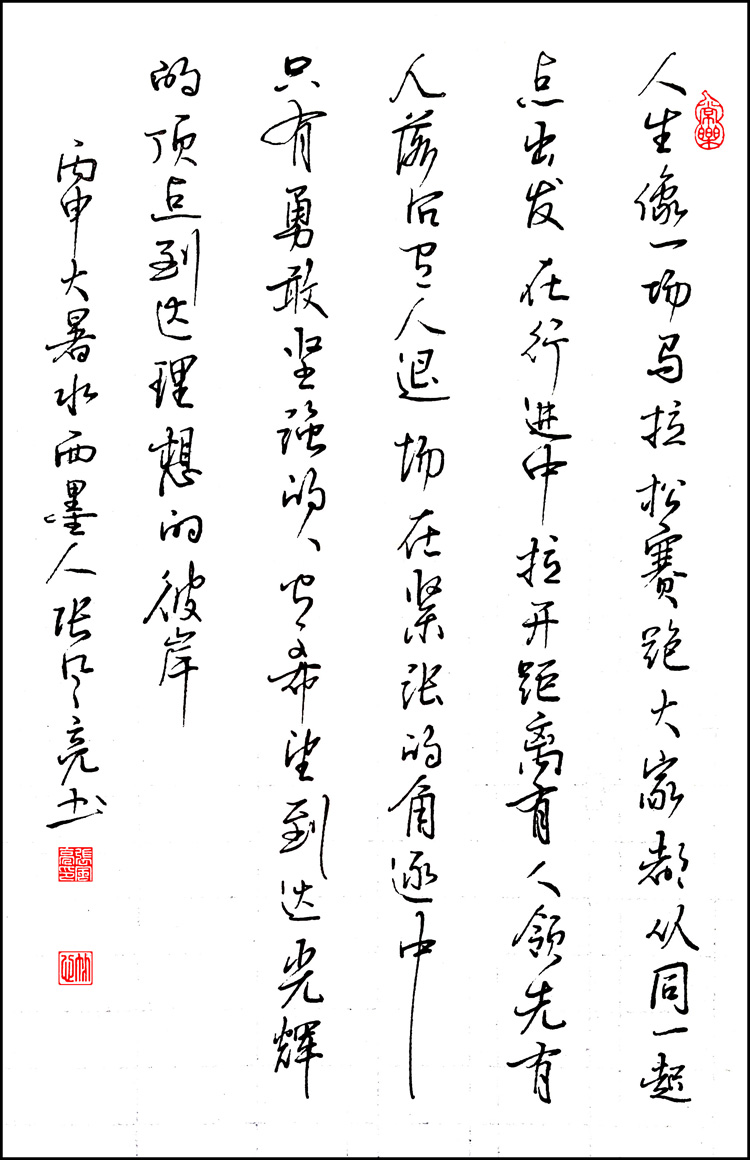 常樂
人生像一场马拉松赛跑大家都从同一起
点出发在行进中拉开距离有人领先有
人落后有人退场在紧张的角逐中
只有勇敢坚强的人有希望到达光辉
的顶点到达理想的彼岸
丙申大暑水西墨人张风亮书
張風亮印